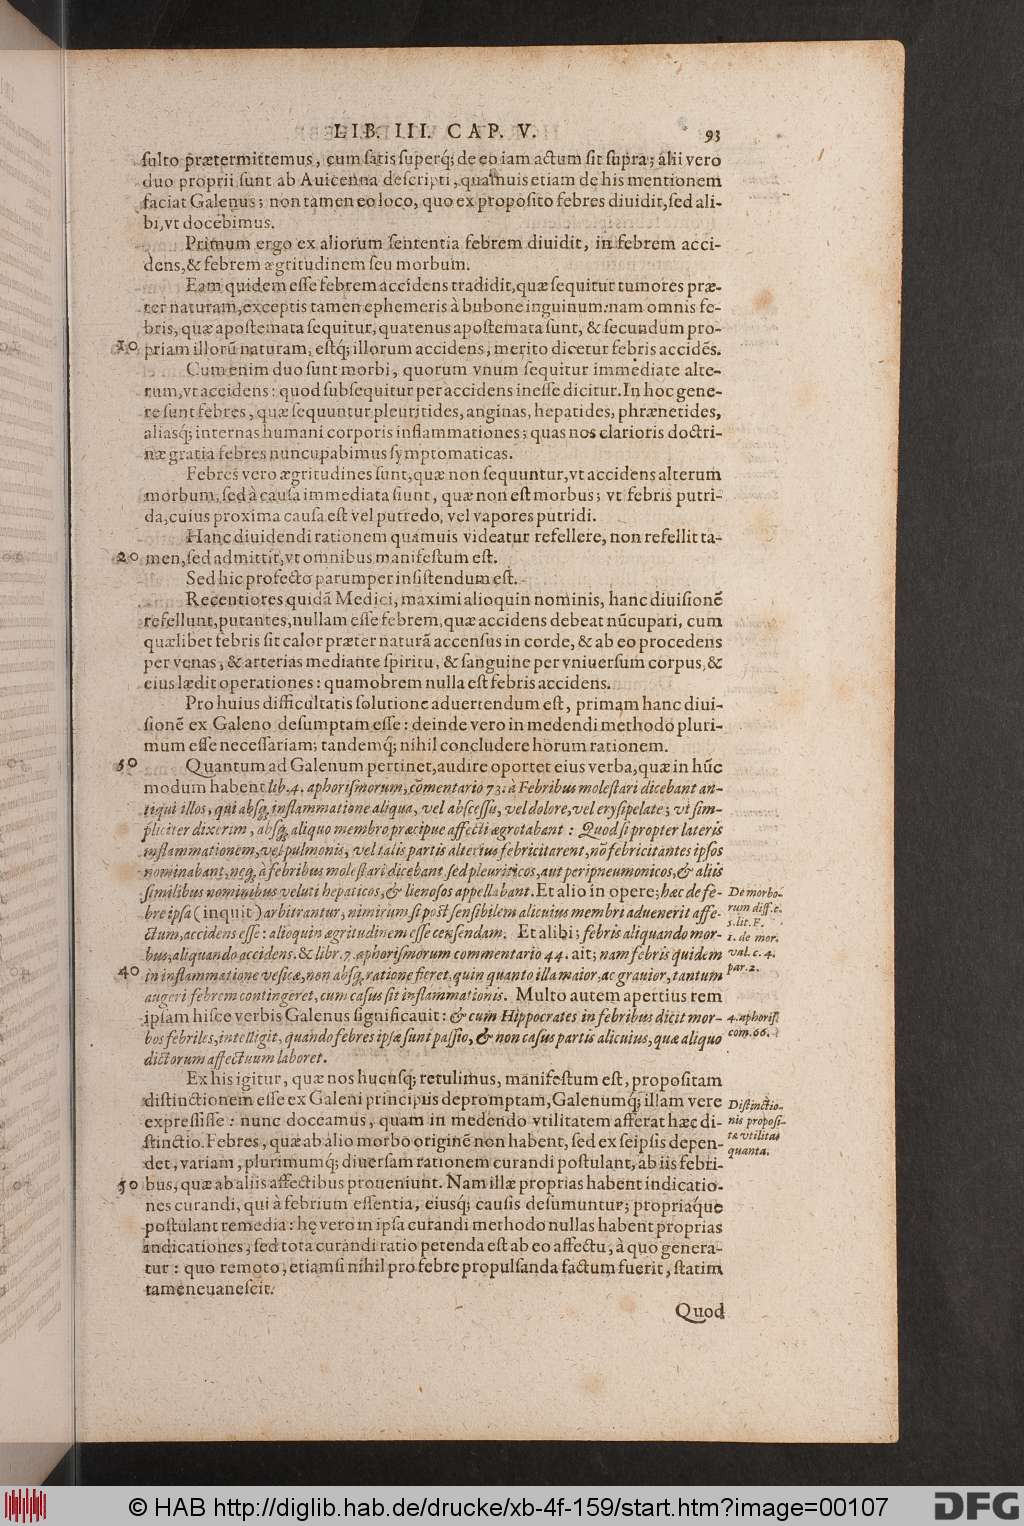 LIB. III. CAP. V. 93
sulto prætermittemus, cum satis superq; de eo iam actum sit supra; alii vero
duo proprii sunt ab Auicenna descripti, quamuis etiam de his mentionem
faciat Galenus; non tamen eo loco, quo ex proposito febres diuidit, sed ali-
bi, vt docebimus.
Primum ergo ex aliorum sententia febrem diuidit, in febrem acci-
dens, & febrem ægritudinem seu morbum.
Eam quidem esse febrem accidens tradidit, quæ sequitur tumores præ-
ter naturam, exceptis tamen ephemeris à bubone inguinum: nam omnis fe-
bris, quæ apostemata sequitur, quatenus apostemata sunt, & secundum pro-
10 priam illorũ naturam, estq; illorum accidens, merito dicetur febris accidẽs.
Cum enim duo sunt morbi, quorum vnum sequitur immediate alte-
rum, vt accidens: quod subsequitur per accidens inesse dicitur. In hoc gene-
re sunt febres, quæ sequuntur pleuritides, anginas, hepatides, phrænetides,
aliasq; internas humani corporis inflammationes; quas nos clarioris doctri-
næ gratia febres nuncupabimus symptomaticas.
Febres vero ægritudines sunt, quæ non sequuntur, vt accidens alterum
morbum, sed à causa immediata fiunt, quæ non est morbus; vt febris putri-
da, cuius proxima causa est vel putredo, vel vapores putridi.
Hanc diuidendi rationem quamuis videatur refellere, non refellit ta-
20 men, sed admittit, vt omnibus manifestum est.
Sed hic profecto parumper insistendum est.
Recentiores quidã Medici, maximi alioquin nominis, hanc diuisionẽ
refellunt, putantes, nullam esse febrem, quæ accidens debeat nũcupari, cum
quælibet febris sit calor præter naturã accensus in corde, & ab eo procedens
per venas, & arterias mediante spiritu, & sanguine per vniuersum corpus, &
eius lædit operationes: quamobrem nulla est febris accidens.
Pro huius difficultatis solutione aduertendum est, primam hanc diui-
sionẽ ex Galeno desumptam esse: deinde vero in medendi methodo pluri-
mum esse necessariam; tandemq; nihil concludere horum rationem.
30 Quantum ad Galenum pertinet, audire oportet eius verba, quæ in hũc
modum habent lib. 4. aphorismorum, cõmentario 73: à Febribus molestari dicebant an-
tiqui illos, qui absq; inflammatione aliqua, vel abscessu, vel dolore, vel erysipelate; vt sim-
pliciter dixerim, absq; aliquo membro præcipue affecti ægrotabant: Quod si propter lateris
inflammationem, vel pulmonis, vel talis partis alterius febricitarent, nõ febricitantes ipsos
nominabant, neq; à febribus molestari dicebant, sed pleuriticos, aut peripneumonicos, & aliis
similibus nominibus veluti hepaticos, & lienosos appellabant. Et alio in opere; hæc de fe- De morbo-
bre ipsa (inquit) arbitrantur, nimirum si post sensibilem alicuius membri aduenerit affe- rum diff. c.
ctum, accidens esse: alioquin ægritudinem esse censendam. Et alibi; febris aliquando mor- 5. lit. F. 1. de mor.
bus, aliquando accidens. & libr. 7. aphorismorum commentario 44. ait; nam febris quidem val. c. 4.
40 in inflammatione vesicæ, non absq; ratione fieret, quin quanto illa maior, ac grauior, tantum par. 2.
augeri febrem contingeret, cum casus sit inflammationis. Multo autem apertius rem
ipsam hisce verbis Galenus significauit: & cum Hippocrates in febribus dicit mor- 4. aphoris.
bos febriles, intelligit, quando febres ipsæ sunt passio, & non casus partis alicuius, quæ aliquo com. 66.
dictorum affectuum laboret.
Ex his igitur, quæ nos hucusq; retulimus, manifestum est, propositam
distinctionem esse ex Galeni principiis depromptam, Galenumq; illam vere Distinctio-
expressisse: nunc doceamus, quam in medendo vtilitatem afferat hæc di- nis proposi-
stinctio. Febres, quæ ab alio morbo originẽ non habent, sed ex seipsis depen- tæ vtilitas
det, variam, plurimumq; diuersam rationem curandi postulant, ab iis febri- quanta.
50 bus, quæ ab aliis affectibus proueniunt. Nam illæ proprias habent indicatio-
nes curandi, qui à febrium essentia, eiusq; causis desumuntur; propriaq́ue
postulant remedia: hę vero in ipsa curandi methodo nullas habent proprias
indicationes, sed tota curandi ratio petenda est ab eo affectu, à quo genera-
tur: quo remoto, etiamsi nihil pro febre propulsanda factum fuerit, statim
tamen euanescit.
Quod
© HAB http://diglib.hab.de/drucke/xb-4f-159/start.htm?image=00107
DFG